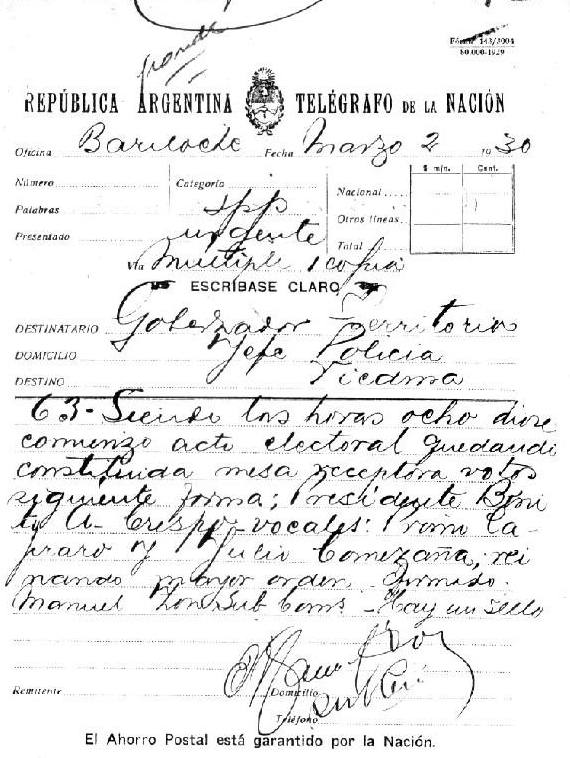 Fórm. 143/3004
80.000-1929
REPÚBLICA ARGENTINA TELÉGRAFO DE LA NACIÓN
Oficina Bariloche Fecha Marzo 2 1930
Número Categoría $ m/n. Cent.
Palabras spp Nacional
Presentado urgente Otros líneas
Total
Vía Multiple 1 copia
ESCRÍBASE CLARO
DESTINATARIO Gobernador Territorio
DOMICILIO Jefe Policia
DESTINO Viedma
63- Siendo las horas ocho diose
comienzo acto electoral quedando
constituida mesa receptora votos
siguiente forma; Presidente Beni
to A. Crespo - vocales: Primo Ca-
praro y Julio Comezaña, rei
nando mayor orden. Firmado.
Manuel Sub Coms. - Hay un sello
Remitente Domicilio
Teléfono
El Ahorro Postal está garantido por la Nación.